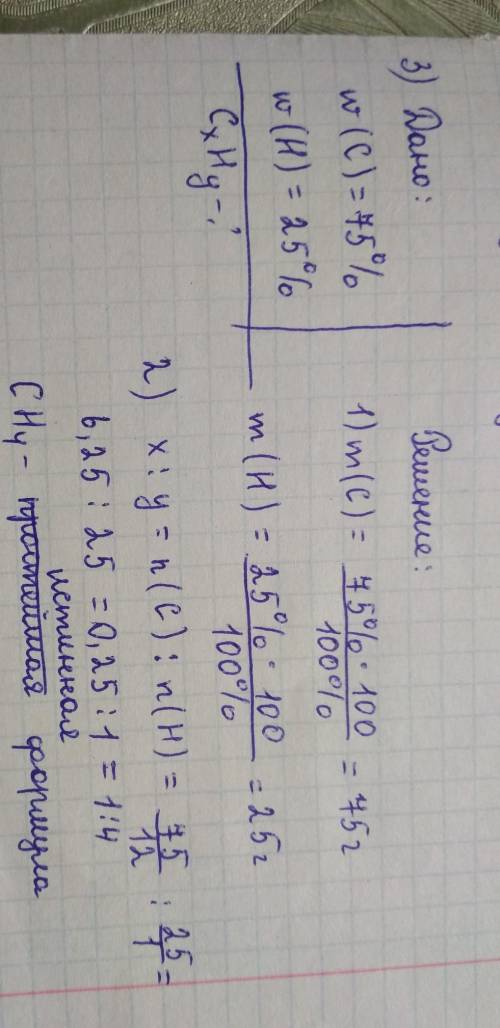 3) Дано:
w(C) = 75%
w(H) = 25%
CxHy - ?
Решение:
1) m(C) = 75% · 100 / 100% = 75г
m(H) = 25% · 100 / 100% = 25г
2) x : y = n(C) : n(H) = 75/12 : 25/1 =
6,25 : 25 = 0,25 : 1 = 1:4
истинная
CH4 - простейшая формула